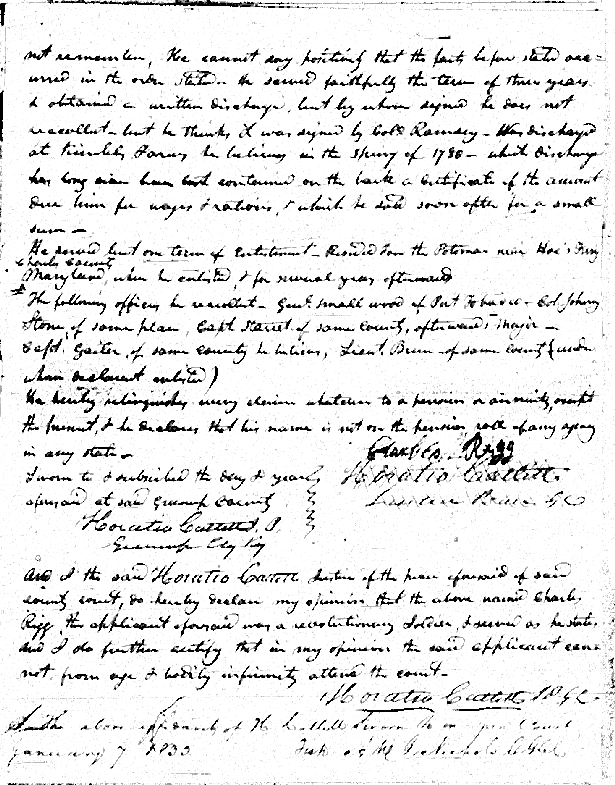 not remember, He cannot say positively that the facts before stated occ-
urred in the order Stated. He served faithfully the term of three years
& obtained a written discharge, but by whom signed he does not
recollect - but he thinks it was signed by Coll Ramsey - Was discharged
at he believes in the spring of 1780 - which discharge
has long since been lost contained on the back a certificate of the amount
due him for wages & rations, & which he sold soon after for a small
sum -
He served but one term of Enlistment - Resided on the Potomac near Hoe's Ferry
Charles County
Maryland, when he enlisted, & for several years afterwards
The following officers he recollects - Genl Smallwood of Port Tobacco - Col. Johnny
Stone, of same place, Capt of same County, afterwards Major -
Capt. of same County he believes, Lieut. of same County (under
whom declarant enlisted)
He hereby relinquishes every claim whatever to a pension or annuity, except
the present, & he declares that his name is not on the pension roll of any agency
in any state -
Charles Rigg
Sworn to & subscribed the day & year
Horatio Catlett
aforesaid at said Greenup County
Horatio Catlett J. P.
Greenup Cty Ky
And I the said Horatio Catlett Justice of the peace aforesaid of said
county court, do hereby declare my opinion that the above named Charles
Rigg, the applicant aforesaid was a revolutionary Soldier, & served as he states
And I do further certify that in my opinion the said applicant can-
not, from age & bodily infirmity attend the court -
Horatio Catlett JPGC
above of H Catlett
January 7 1833